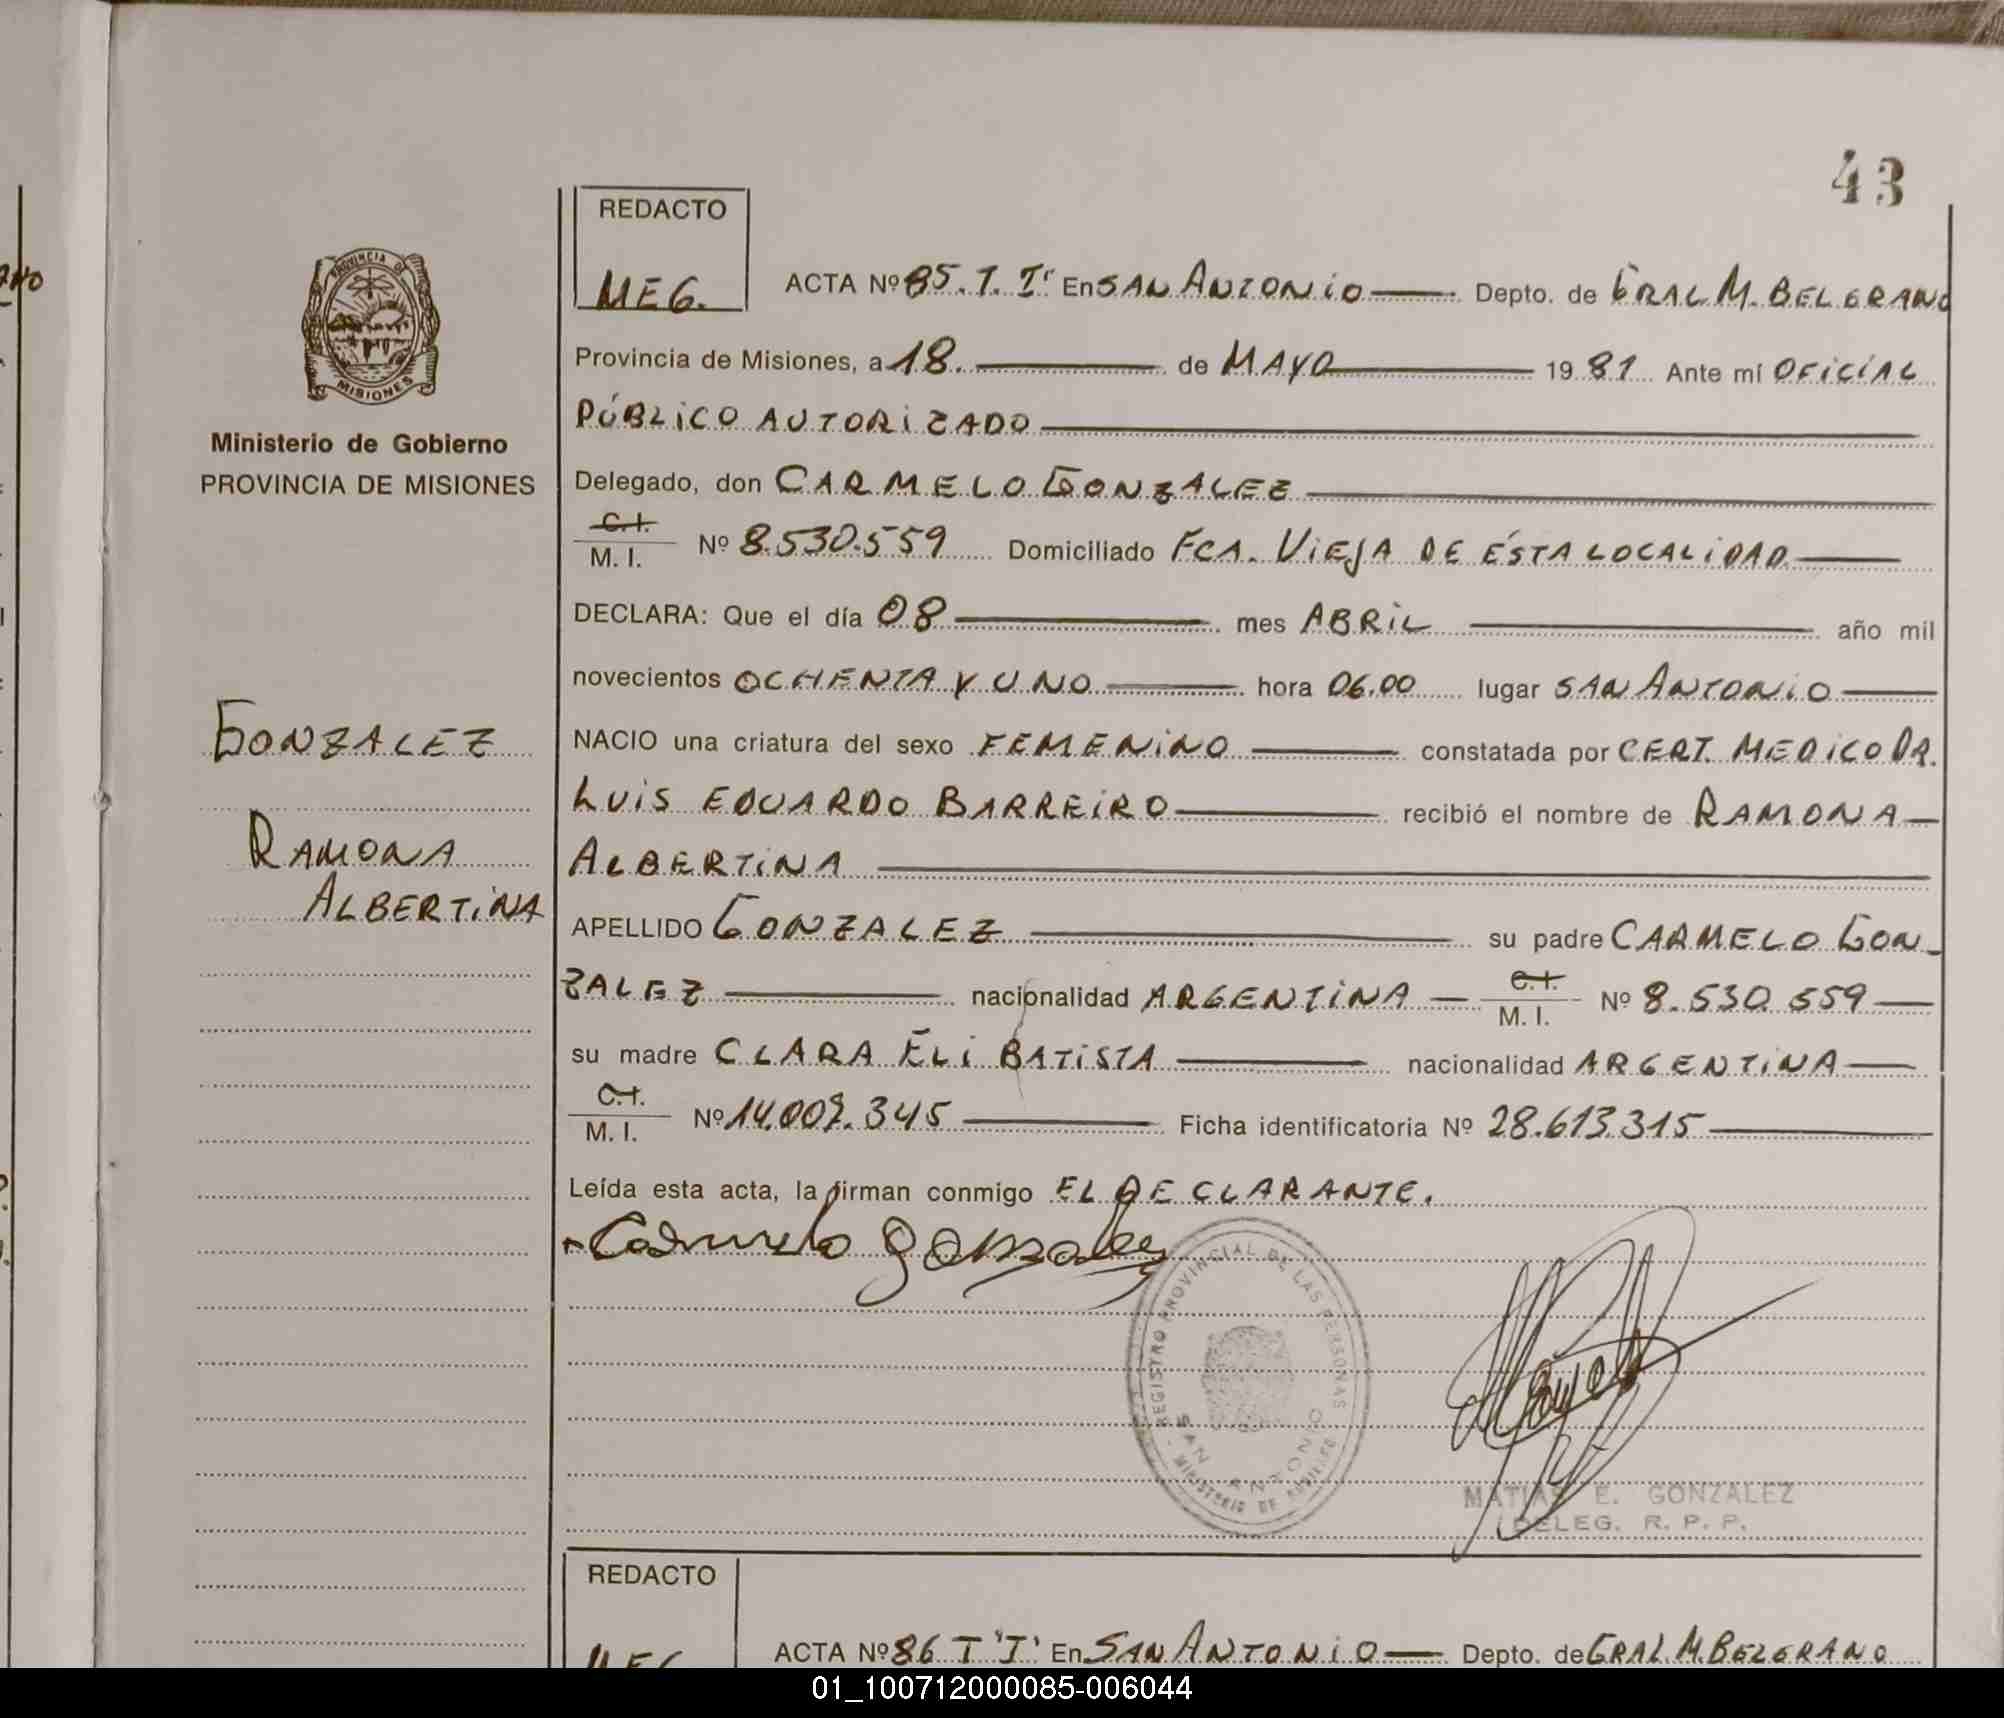 43
REDACTO
MEG.
ACTA Nº 85. T. I' En SAN ANTONIO Depto. de GRAL M. BELGRANO
Provincia de Misiones, a 18. de MAYO 19 81 Ante mí OFICIAL
PÚBLICO AUTORIZADO
Delegado, don CARMELO GONZALEZ
C.I.
M. I. Nº 8.530.559 Domiciliado FCA. VIEJA DE ÉSTA LOCALIDAD
DECLARA: Que el día 08 mes ABRIL año mil
novecientos OCHENTA Y UNO hora 06.00 lugar SAN ANTONIO
NACIO una criatura del sexo FEMENINO constatada por CERT. MEDICO DR.
LUIS EDUARDO BARREIRO recibió el nombre de RAMONA
ALBERTINA
APELLIDO GONZALEZ su padre CARMELO GON-
ZALEZ nacionalidad ARGENTINA C.I. M. I. Nº 8.530.559
su madre CLARA ELI BATISTA nacionalidad ARGENTINA
C.I.
M. I. Nº 14.007.345 Ficha identificatoria Nº 28.613.315
Leída esta acta, la firman conmigo EL DECLARANTE.
Carmelo Gonzalez
REGISTRO PROVINCIAL DE LAS PERSONAS
SAN ANTONIO
MINISTERIO DE
MATIAS E. GONZALEZ
DELEG. R. P. P.
PROVINCIA DE
MISIONES
Ministerio de Gobierno
PROVINCIA DE MISIONES
GONZALEZ
RAMONA
ALBERTINA
REDACTO
MEG
ACTA Nº 86 T 'I' En SAN ANTONIO Depto. de GRAL. M. BELGRANO
01_100712000085-006044